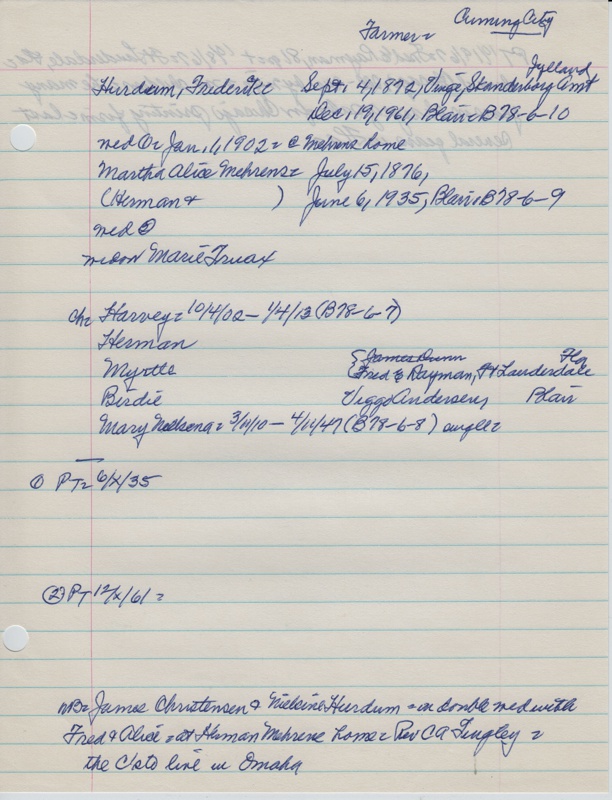 Farmer = Cuming City
Jylland
Hurdum, Frederikc Sept. 4, 1872, Vinge, Skanderborg Amt
Dec. 19, 1961, Blair = B78-6-10
wed ① = Jan. 1, 1902 = @ Mehrens home
Martha Alice Mehrens = July 15, 1876,
(Herman & ) June 6, 1935, Blair = B78-6-9
wed ②
widow Marie Truax
ch = Harvey = 10/4/02 – 1/4/13 (B78-6-7)
Herman
Myrtle { James Dunn Fla
{ Fred E Rayman, Ft Lauderdale
Birdie Viggo Andersen, Blair
Mary = 3/11/10 – 4/11/47 (B78-6-8) single =
① PT = 6/X/35
② PT 12/X/61 =
NB = James Christensen & Nielsine Hurdum = in double wed with
Fred & Alice = at Herman Mehrens home = Rev CA Tingley =
the C's to live in Omaha